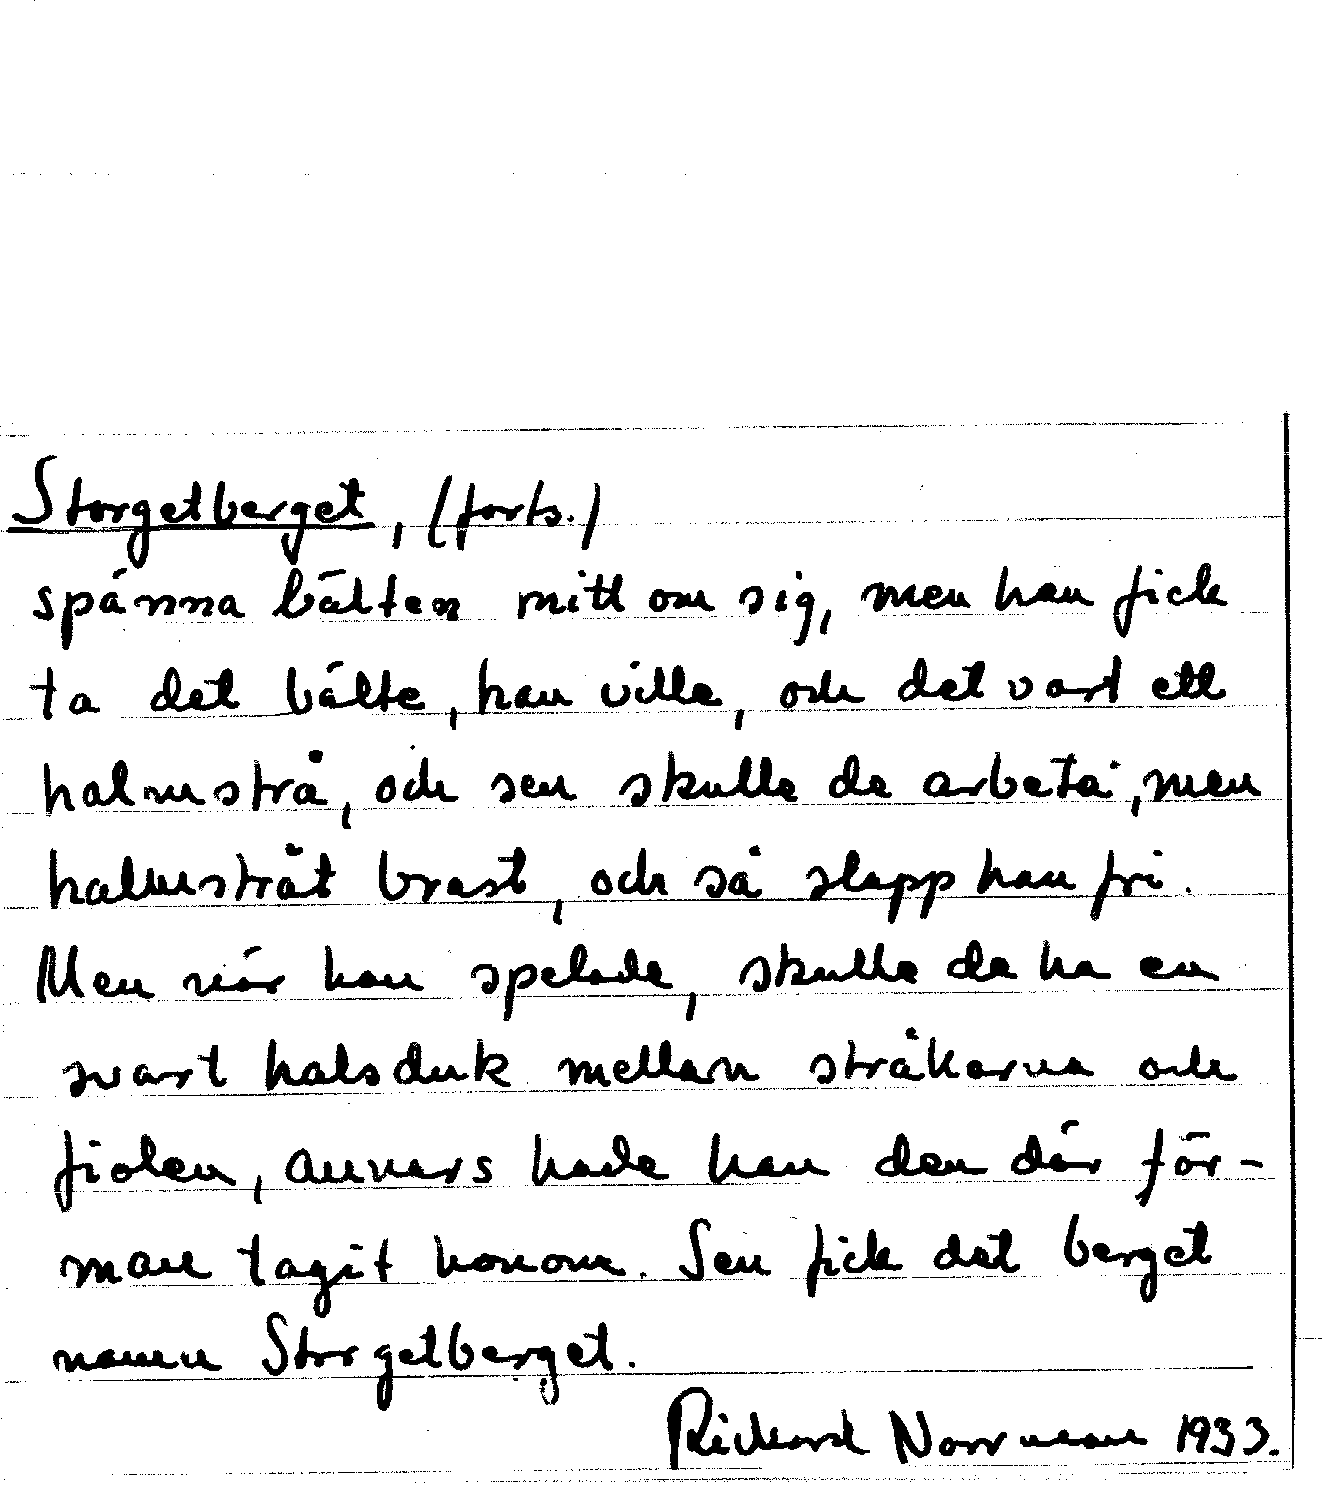 Storgetberget, (forts.)
spänna bälten mitt om sig, men han fick
ta det bälte, han ville, och det vart ett
halmstrå, och sen skulle de arbeta, men
halmstråt brast, och så slapp han fri.
Men när han spelade, skulle de ha en
svart halsduk mellan stråkarna och
fiolen, annars hade han den där för-
man tagit honom. Sen fick det berget
namn Storgetberget.
Rickard Norrman 1933.